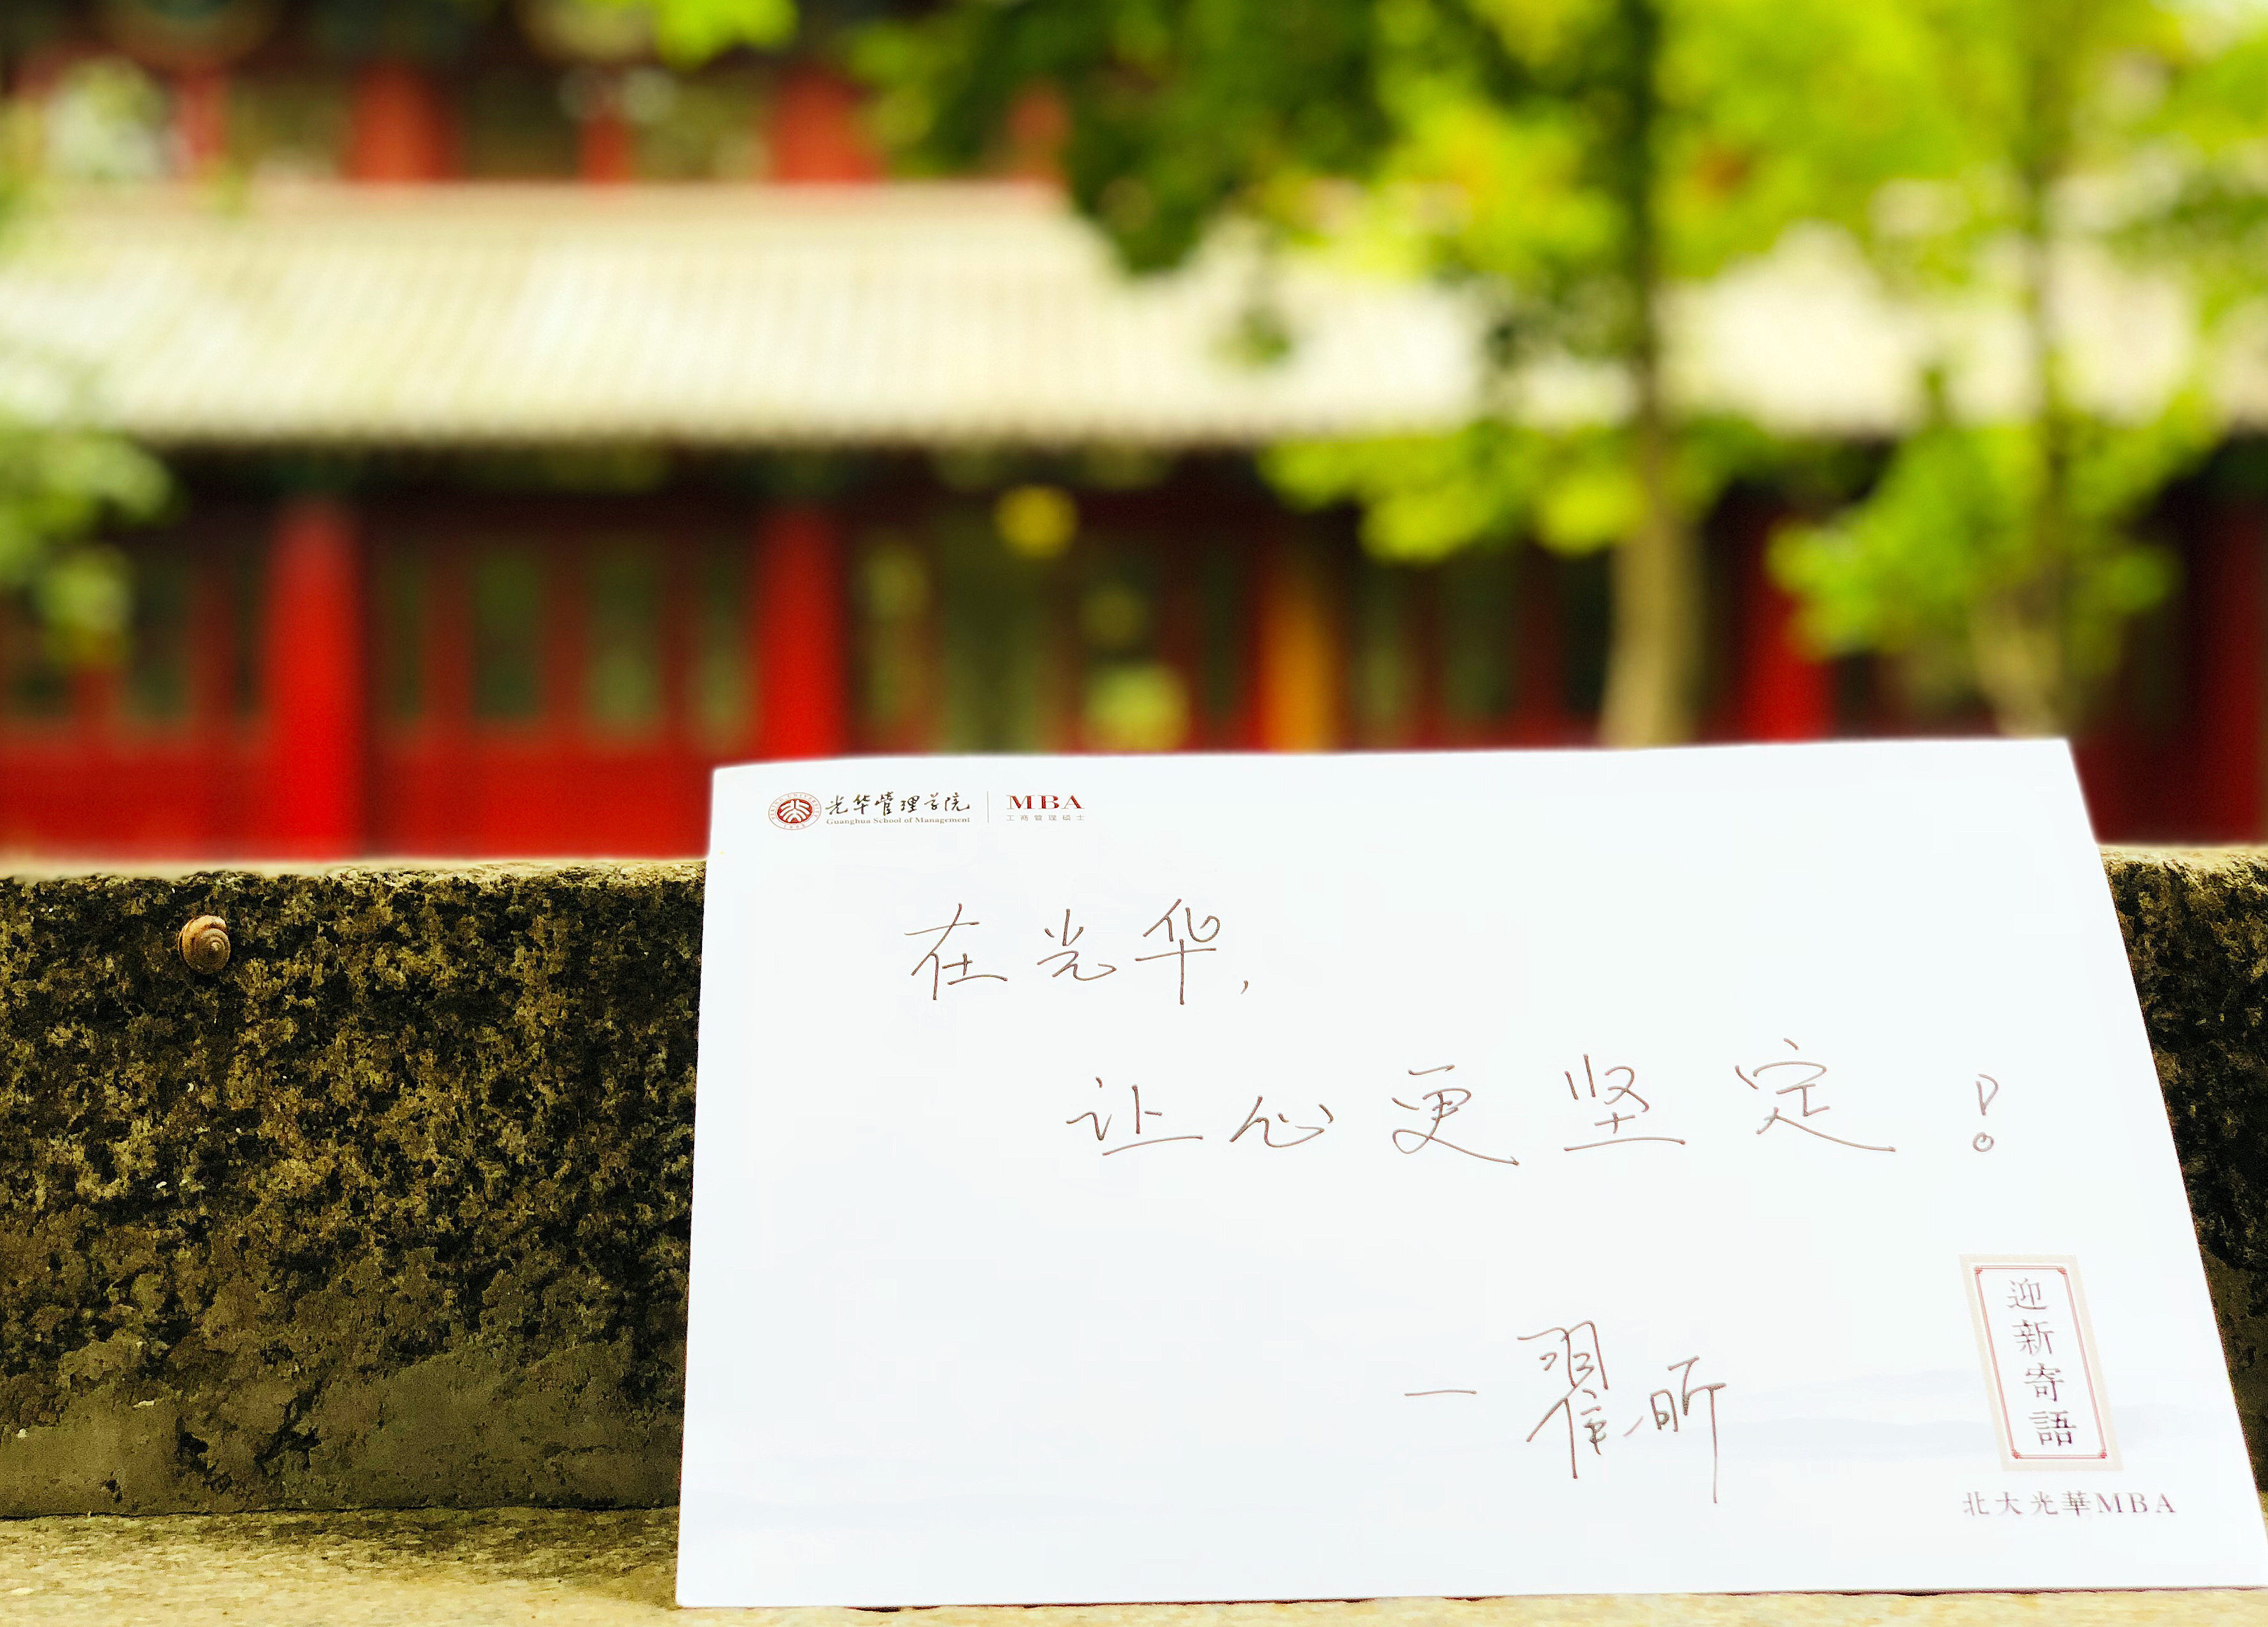 光华管理学院 MBA
Guanghua School of Management 工商管理硕士
在光华,
让心更坚定!
一翟昕
迎新寄語
北大光華MBA